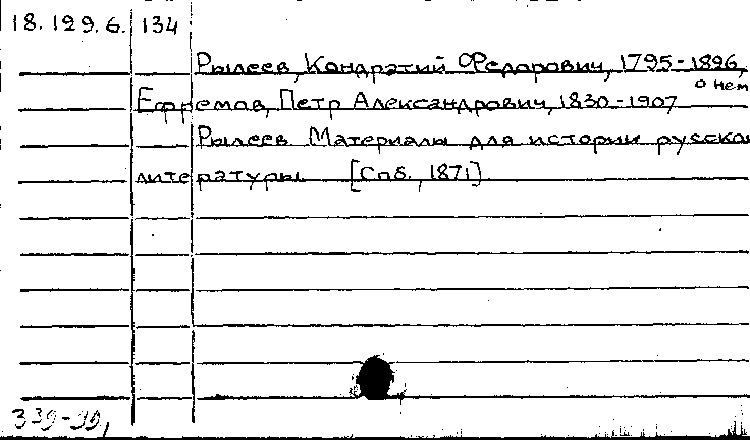 18.129.6. 134
Рылеев, Кондратий Федорович, 1795-1826,
о нем
Ефремов, Петр Александрович, 1830-1907
Рылеев Материалы для истории русско
литературы [Спб., 1871]
339-99,